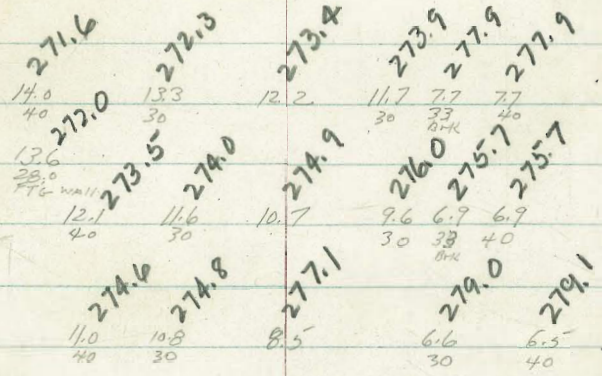 271.6 272.3 273.4 273.9 277.9 277.9
14.0 13.3 12.2 11.7 7.7 7.7
40 30 30 33 40
BHK
272.0
13.6
28.0
FTG WALL
273.5 274.0 274.9 276.0 275.7 275.7
12.1 11.6 10.7 9.6 6.9 6.9
40 30 30 33 40
BHK
274.6 274.8 277.1 279.0 279.1
11.0 10.8 8.5 6.6 6.5
40 30 30 40